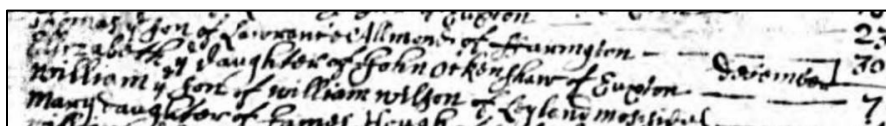 of Euxton
Thomas ye son of Lawrence Allmond of Farington 23
Elizabeth ye Daughter of John Ockenshaw of Euxton 30
William ye son of William Wilson of Leyland December 7
Mary Daughter of James Hough